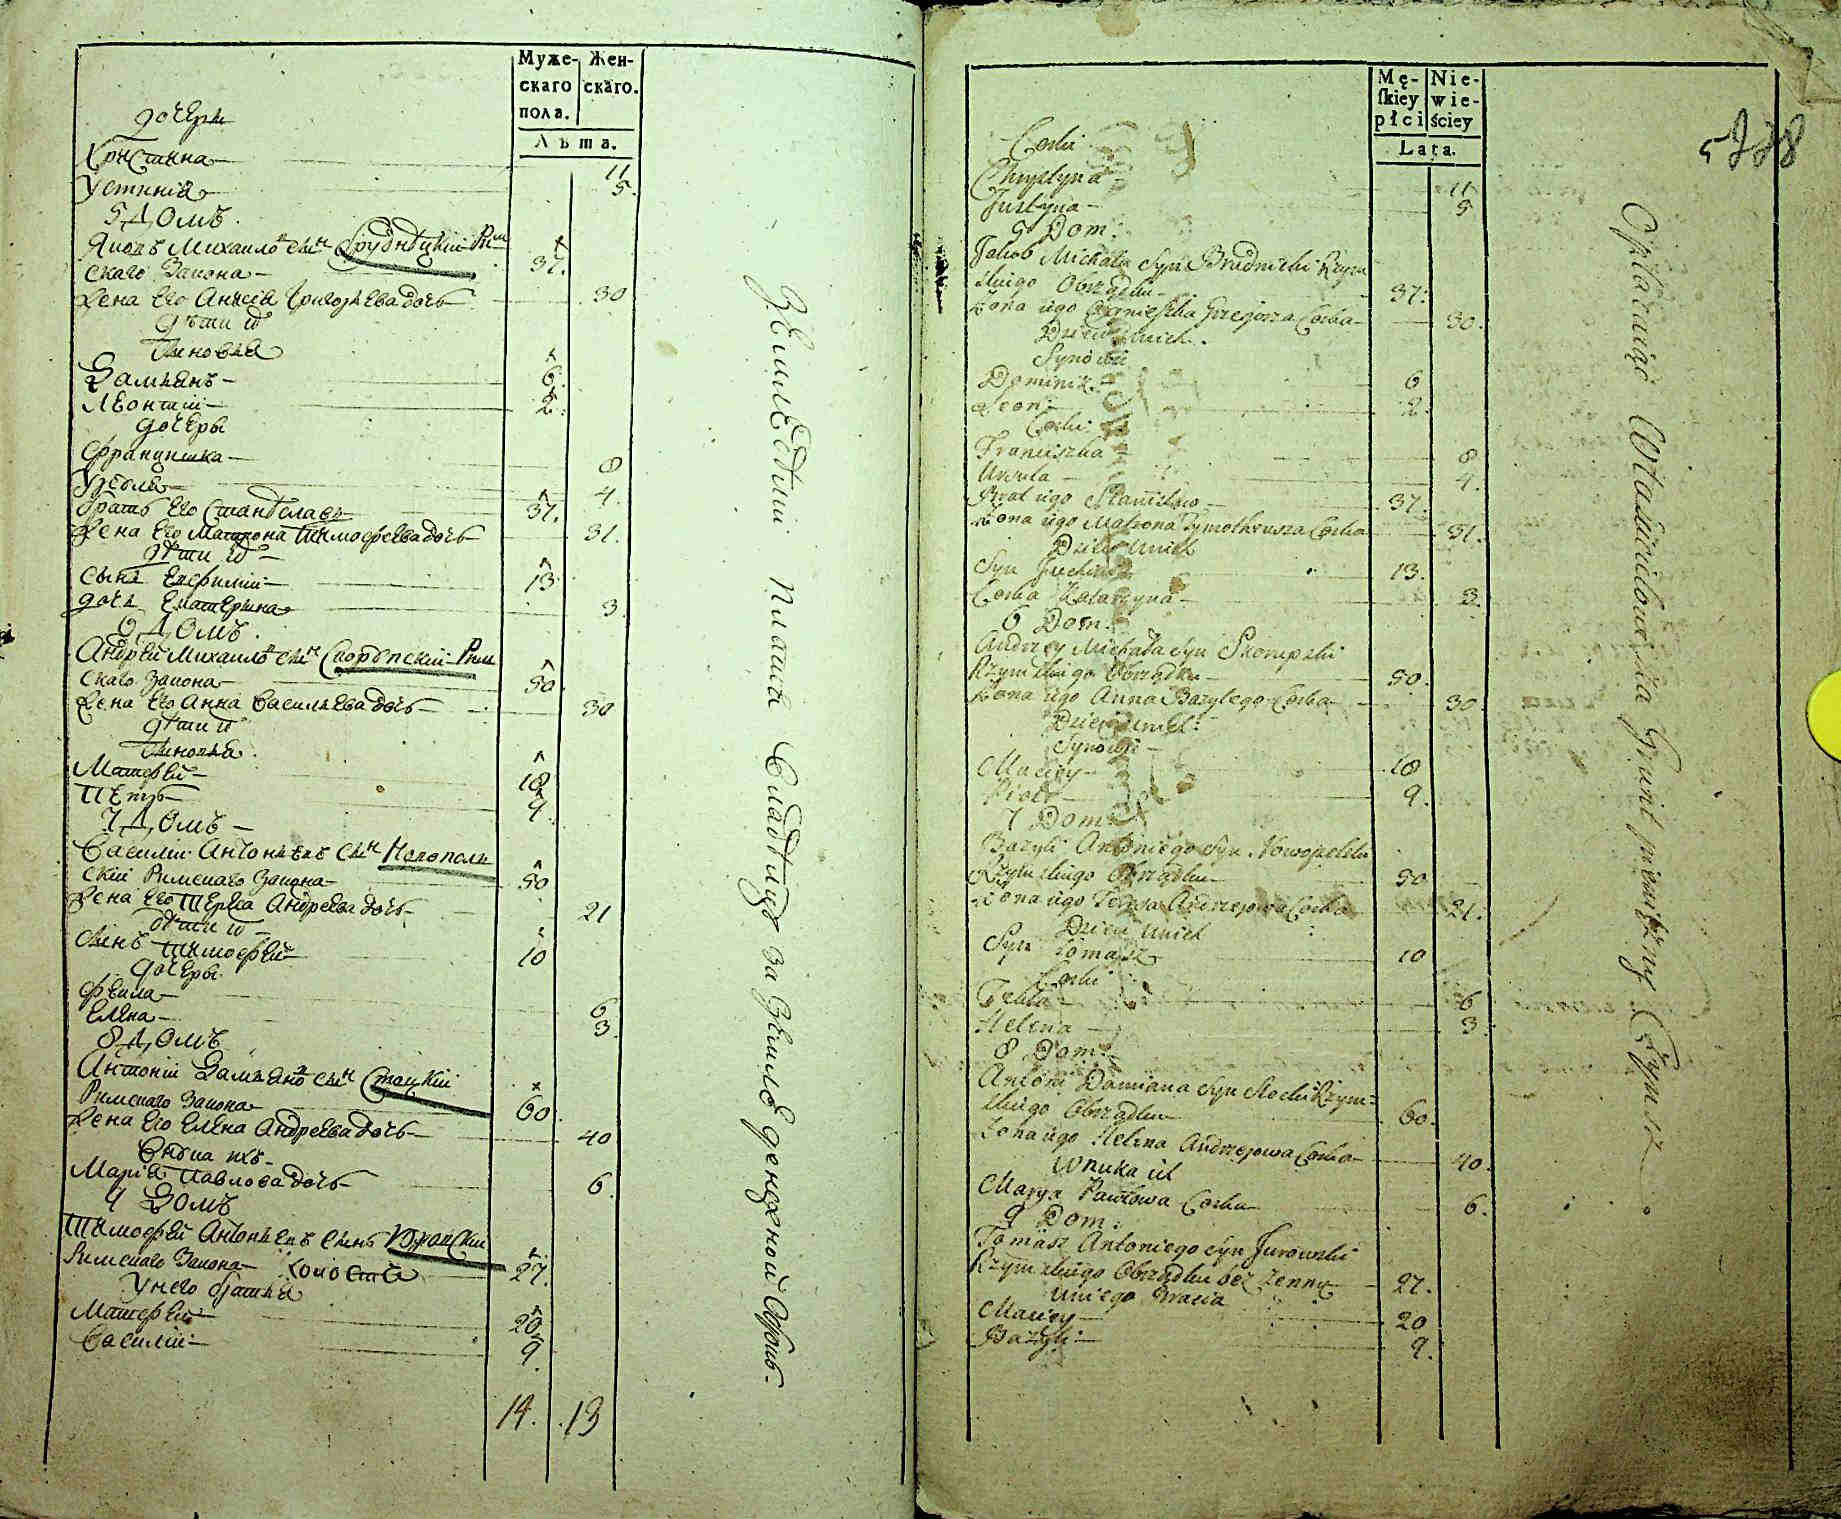 Муже-
скаго
пола.
Жен-
скаго.
Лѣта.
дочери
Христина — 11
Устинія — 5.
5 Домъ.
Яковъ Михайловъ сынъ Грудницкій Рим
скаго Закона — 37.
Жена Его Григорьева дочь — 30
дѣти ихъ
Сыновья
Дамьянъ — 6.
Леонтій — 2.
дочеры
Францишка — 8
Урсола — 4.
братъ Его Станиславъ — 37.
Жена Его Матрона Тимофеева дочь — 31.
дѣти ихъ —
сынъ Ефимій — 13
дочь Екатерина — 3
6 Домъ.
Андрей Михайловъ сынъ Скорупскій Рим
скаго Закона — 50
Жена Его Анна Васильева дочь — 30
дѣти ихъ
Сыновья
Матфей — 18
Петръ — 9
7 Домъ —
Василій Антоньевъ сынъ Новополь
скій Римскаго Закона — 50
Жена Его Тереса Андреева дочь — 21
дѣти ихъ —
сынъ Тимофей — 10
дочеры
Фекла — 6
Елена — 3.
8 Домъ
Антоній Дамьяновъ сынъ Стоцкій
Римскаго Закона — 60
Жена Его Елена Андреева дочь — 40
Внука ихъ —
Марія Павлова дочь — 6.
9 Домъ
Тимофей Антоньевъ сынъ Юровскій
Римскаго Закона — холостъ — 27.
У него братья
Матфей — 20
Василій — 9.
14. 13
Землѣдѣлы Владѣлцу за Землю денежной Оброкъ.
Mę-
ſkiey
płci
Nie-
wie-
ściey
Lata.
5778
Corki
Chrystyna — 11
Justyna — 5
5 Dom.
Jakob Michała Syn Brudnicki Rzym
skiego Obrządku — 37.
Żona iego Agnieszka Grzegorza Corka — 30.
Dzieci u nich.
Synowie
Dominik — 6
Leon — 2.
Corki
Franciszka — 8
Ursula — 4.
Brat iego Stanisław — 37.
Żona iego Matrona Tymotheusza Corka — 31.
Dzieci u nich
Syn — 13.
Corka Katarzyna — 3.
6 Dom.
Andrzey Michała syn Skorupski
Rzymskiego Obrządku — 50.
Żona iego Anna Bazylego Corka — 30.
Dzieci u nich.
Synowie —
Maciey — 18
Piotr — 9.
7 Dom
Bazyli Antoniego Syn Nowopolski
Rzymskiego Obrządku — 50
Żona iego Teresa Andrzejowa Corka — 21.
Dzieci u nich
Syn Tomasz — 10
Corki
Tekla — 6
Helena — 3.
8 Dom.
Antoni Damiana Syn Stocki Rzym=
skiego Obrządku — 60.
Żona iego Helena Andrzejowa Corka — 40.
Wnuka ich
Marya Pawłowa Corka — 6.
9 Dom.
Tomasz Antoniego syn Jurowski
Rzymskiego Obrządku bez żenny — 27.
U niego Bracia
Maciey — 20
Bazyli — 9.
Opłacaiąc Właścicielowi za Grunt pieniężny Czynsz